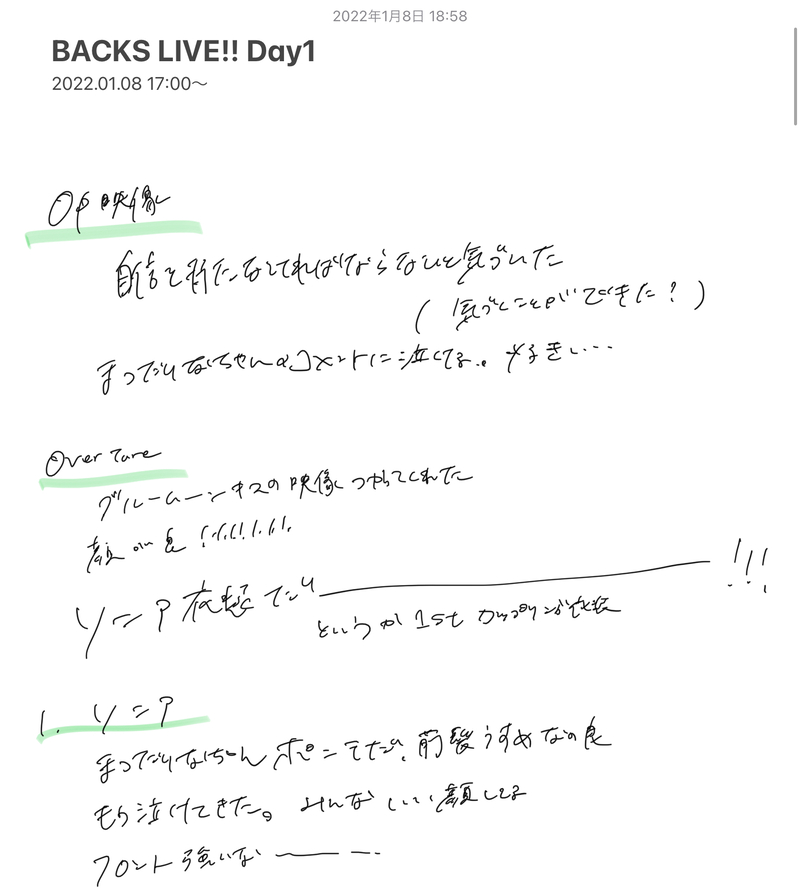 2022年1月8日 18:58
BACKS LIVE!! Day1
2022.01.08 17:00〜
OP映像
自信を持たなくてればならないと気づいた
(気づくことができた?)
まつだりなちゃんのコメントに泣いてる。好き…
Overture
ブルームーンキスの映像つかってくれた
顔が良!!!!!!!!
Y=? 衣装だり――!!!
というか1stカップリング衣装
1. Y=?
まつだりなちゃんポニテだ、前髪うすめなの良
もう泣けてきた。みんないい顔してる
フロント強いな――